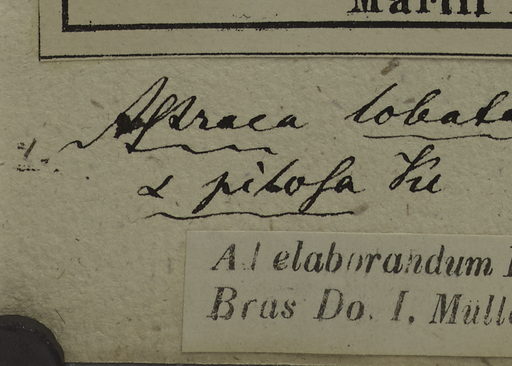 Astraea lobata
α pilosa Kl
Ad elaborandum
Bras Do. I. Müll